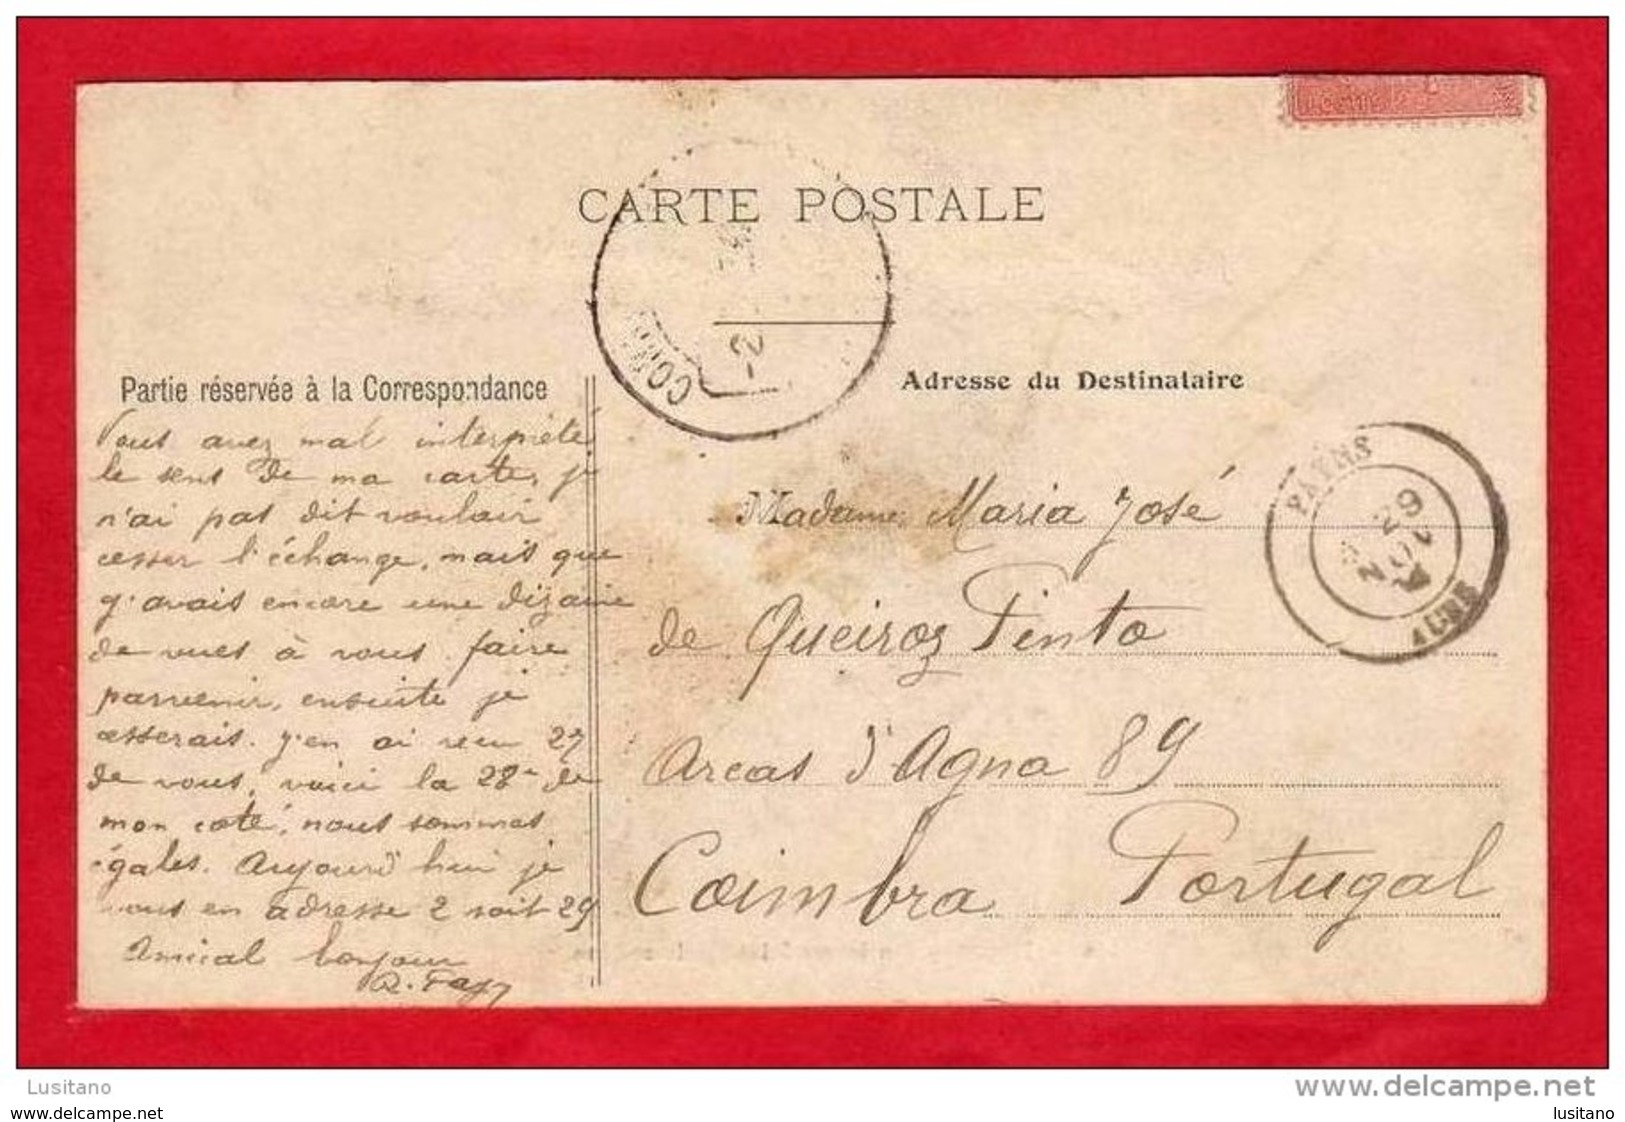 CARTE POSTALE
Partie réservée à la Correspondance
Adresse du Destinataire
Vous avez mal interprété
le sens de ma carte, je
n'ai pas dit vouloir
cesser l'échange, mais que
j'avais encore une dizaine
de vues à vous faire
parvenir, ensuite je
cesserais. J'en ai reçu 27
de vous, voici la 28e de
mon coté, nous sommes
égales. Aujourd'hui je
vous en adresse 2 soit 29
Amical bonjour
Madame Maria José
de Queiroz Pinto
Arcas d'Agna 89
Coimbra Portugal
PAYNS
29
NOV
AUBE
Lusitano
www.delcampe.net
www.delcampe.net
lusitano